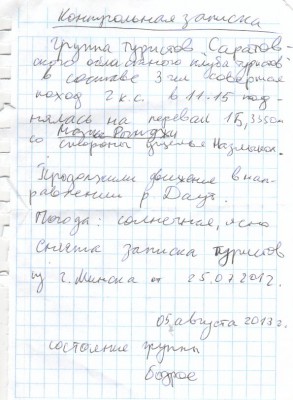 Контрольная записка
Группа туристов Саратов-
ского областного клуба туристов
в составе 3 чел совершая
поход 2 к.с. в 11-15 под-
нялась на перевал 1Б, 3350м
со стороны ущелья
Продолжили движение в нап-
равлении р.
Погода: солнечная, ясно
Снята записка туристов
из г. Минска от 25.07.2012.
05 августа 2013 г.
состояние группы
бодрое